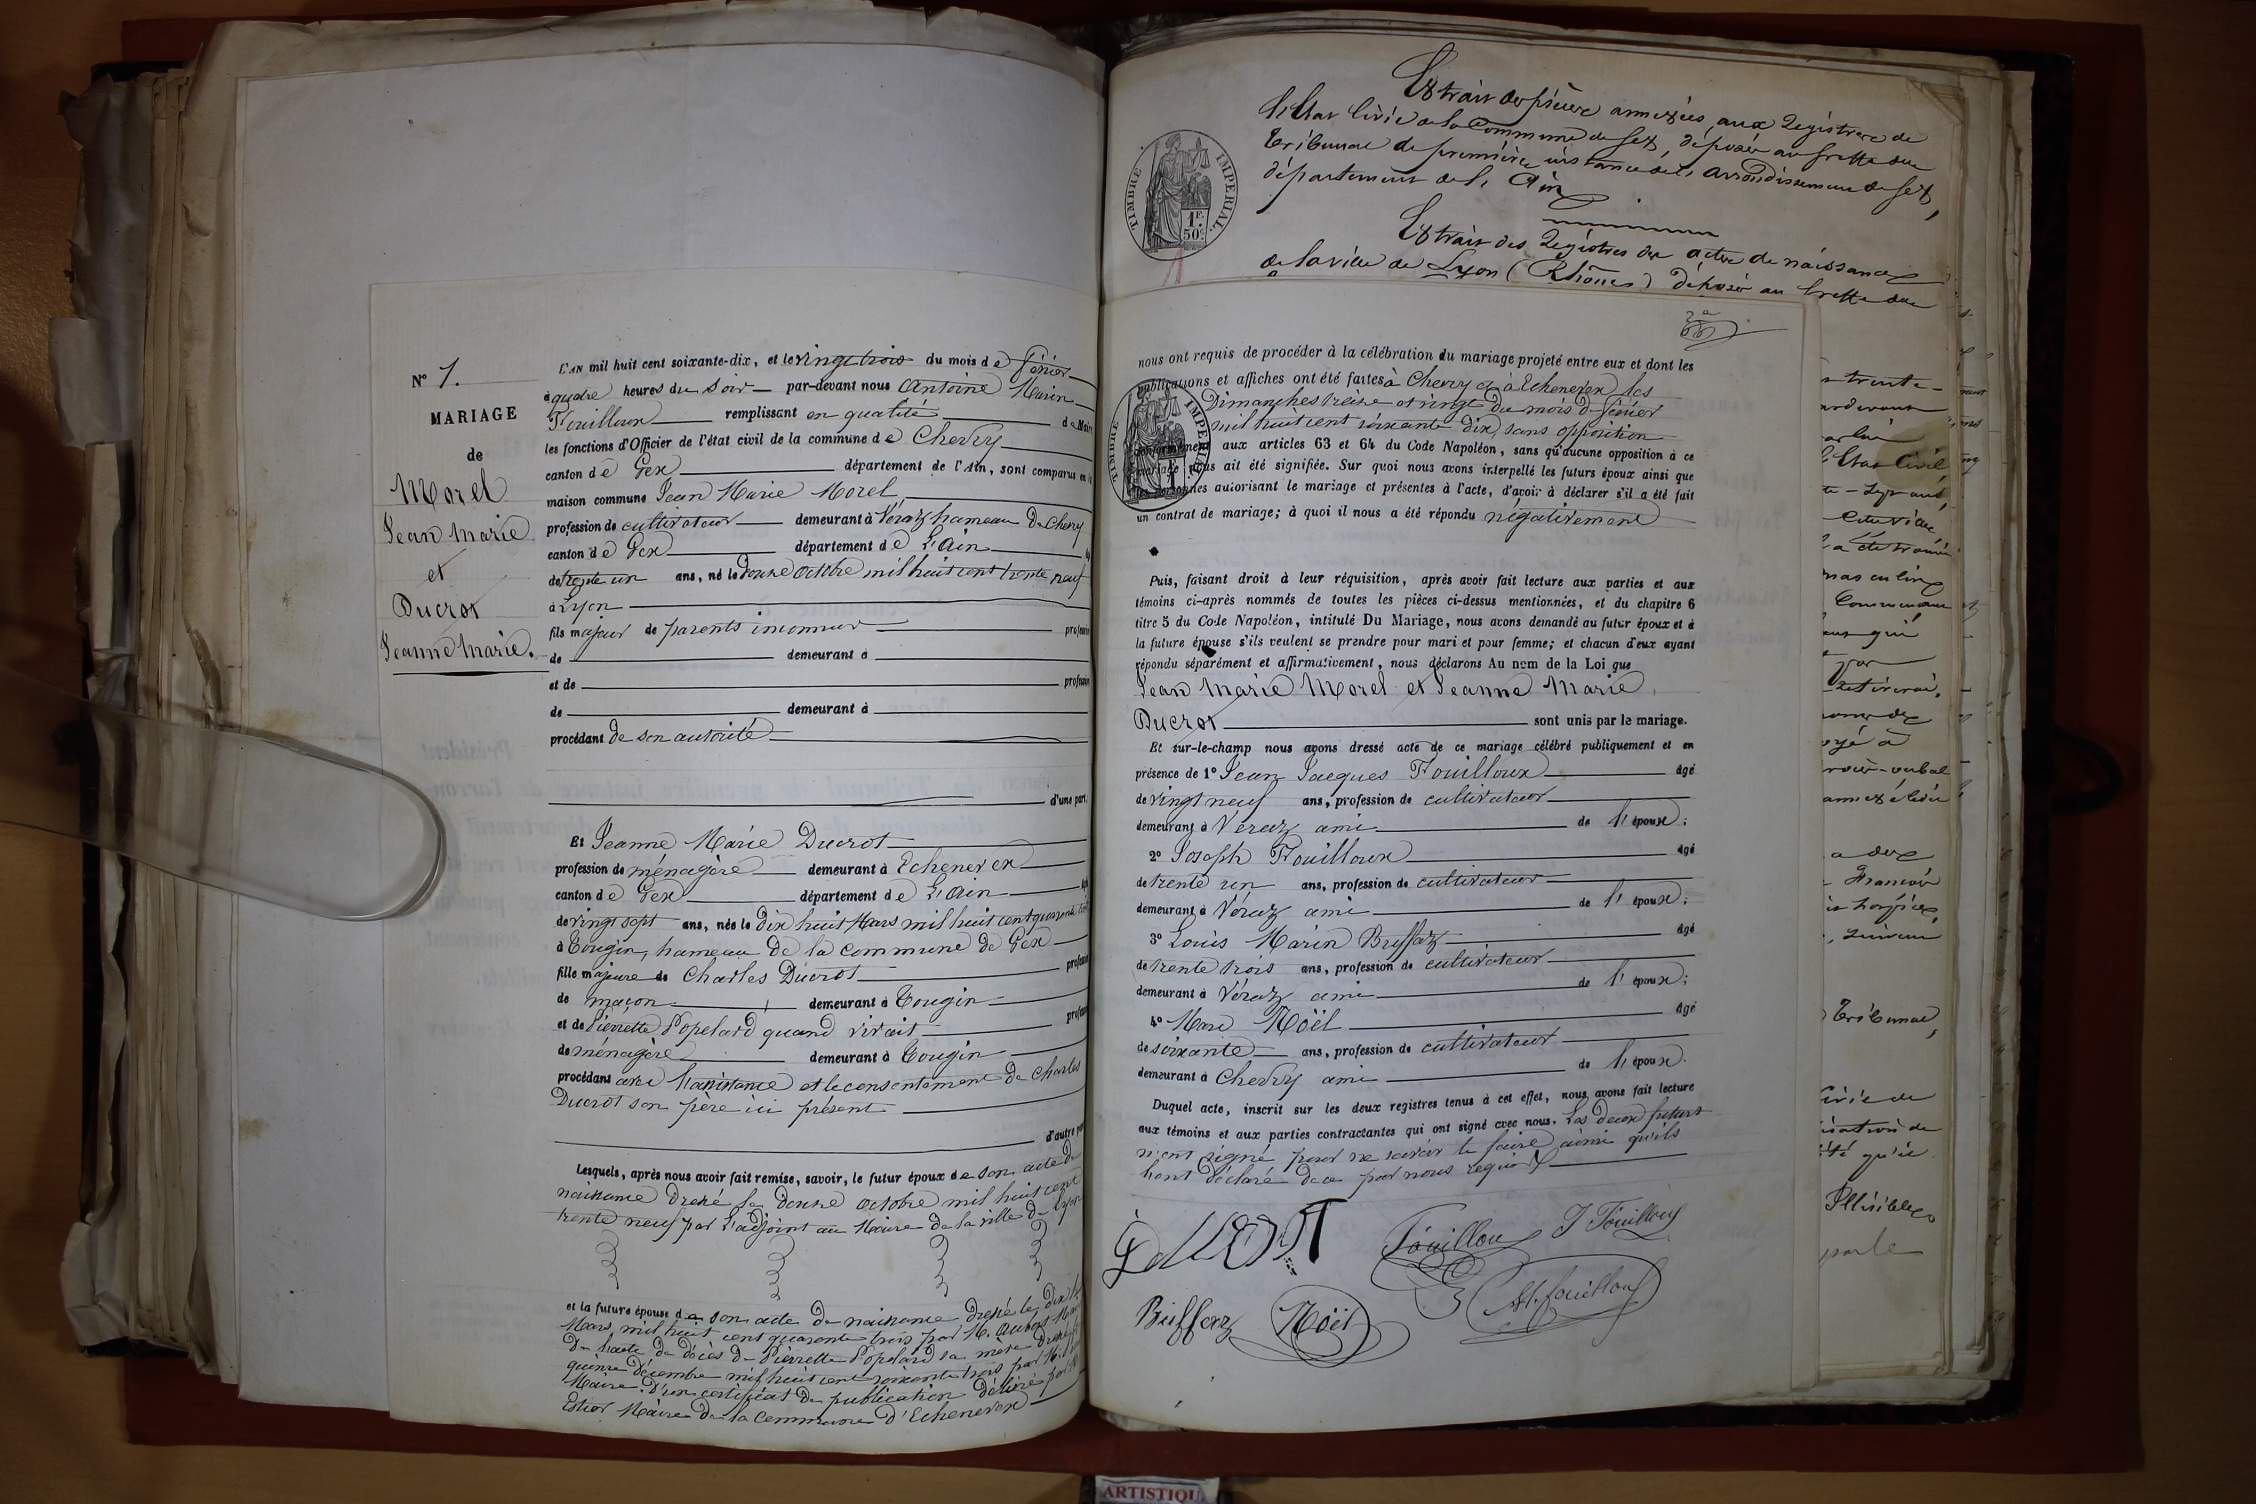 N° 1.
MARIAGE
de
Morel
Jean Marie
et
Ducrot
Jeanne Marie.
L'AN mil huit cent soixante-dix, et le vingt trois du mois de février
à quatre heures du soir par-devant nous Antoine Marin
Fouilloux remplissant en qualité de Maire
les fonctions d'Officier de l'état civil de la commune de Chevry
canton de Gex département de l'Ain, sont comparus en la
maison commune Jean Marie Morel
profession de cultivateur demeurant à Véraz hameau de Chevry
canton de Gex département de L'Ain
de trente un ans, né le douze octobre mil huit cent trente neuf
à Lyon
fils majeur de parents inconnus profession
de demeurant à
et de profession
de demeurant à
procédant de son autorité
d'une part,
Et Jeanne Marie Ducrot
profession de ménagère demeurant à Echenevex
canton de Gex département de L'Ain
de vingt sept ans, née le dix huit Mars mil huit cent quarante trois
à Tougin, hameau de la commune de Gex
fille majeure de Charles Ducrot profession
de maçon demeurant à Tougin
et de Pierrette Popelard quand vivait profession
de ménagère demeurant à Tougin
procédant avec l'assistance et le consentement de Charles
Ducrot son père ici présent
d'autre part
Lesquels, après nous avoir fait remise, savoir, le futur époux de son acte de
naissance dressé le douze octobre mil huit cent
trente neuf par l'adjoint au Maire de la ville de Lyon
et la future épouse de son acte de naissance dressé le dix huit
Mars mil huit cent quarante trois par M.
De l'acte de décès de Pierrette Popelard sa mère dressé le
quinze décembre mil huit cent soixante trois par M.
Maire. D'un certificat de publication délivré par
Maire de la Commune d'Echenevex
TIMBRE IMPERIAL.
1F.
50c.
Extrait des pièces annexées aux Registres de
l'Etat Civil de la Commune de Gex, déposés au Greffe du
Tribunal de première instance de l'arrondissement de Gex,
département de l'Ain
Extrait des Registres des actes de naissances
de la ville de Lyon (Rhône) déposés au Greffe du
nous ont requis de procéder à la célébration du mariage projeté entre eux et dont les
publications et affiches ont été faites à Chevry et à Echenevex les
Dimanches treize et vingt du mois de février
mil huit cent soixante dix, sans opposition
conformément aux articles 63 et 64 du Code Napoléon, sans qu'aucune opposition à ce
mariage nous ait été signifiée. Sur quoi nous avons interpellé les futurs époux ainsi que
les personnes autorisant le mariage et présentes à l'acte, d'avoir à déclarer s'il a été fait
un contrat de mariage; à quoi il nous a été répondu négativement
TIMBRE IMPERIAL
Puis, faisant droit à leur réquisition, après avoir fait lecture aux parties et aux
témoins ci-après nommés de toutes les pièces ci-dessus mentionnées, et du chapitre 6
titre 5 du Code Napoléon, intitulé Du Mariage, nous avons demandé au futur époux et à
la future épouse s'ils veulent se prendre pour mari et pour femme; et chacun d'eux ayant
répondu séparément et affirmativement, nous déclarons Au nom de la Loi que
Jean Marie Morel et Jeanne Marie
Ducrot sont unis par le mariage.
Et sur-le-champ nous avons dressé acte de ce mariage célébré publiquement et en
présence de 1° Jean Jacques Fouilloux âgé
de vingt neuf ans, profession de cultivateur
demeurant à Véraz ami de l'époux;
2° Joseph Fouilloux âgé
de trente un ans, profession de cultivateur
demeurant à Véraz ami de l'époux;
3° Louis Marin Buffaz âgé
de trente trois ans, profession de cultivateur
demeurant à Véraz ami de l'époux;
4° Noël âgé
de soixante ans, profession de cultivateur
demeurant à Chevry ami de l'époux.
Duquel acte, inscrit sur les deux registres tenus à cet effet, nous avons fait lecture
aux témoins et aux parties contractantes qui ont signé avec nous. Les deux futurs
n'ont signé pour ne savoir le faire ainsi qu'ils
l'ont déclaré de ce par nous requis
Fouilloux J Fouilloux
Buffaz Noël
Fouilloux
l'Etat Civil
masculin
Commune
Tribunal,
qu'il
Illisible
parle
ARTISTIQU